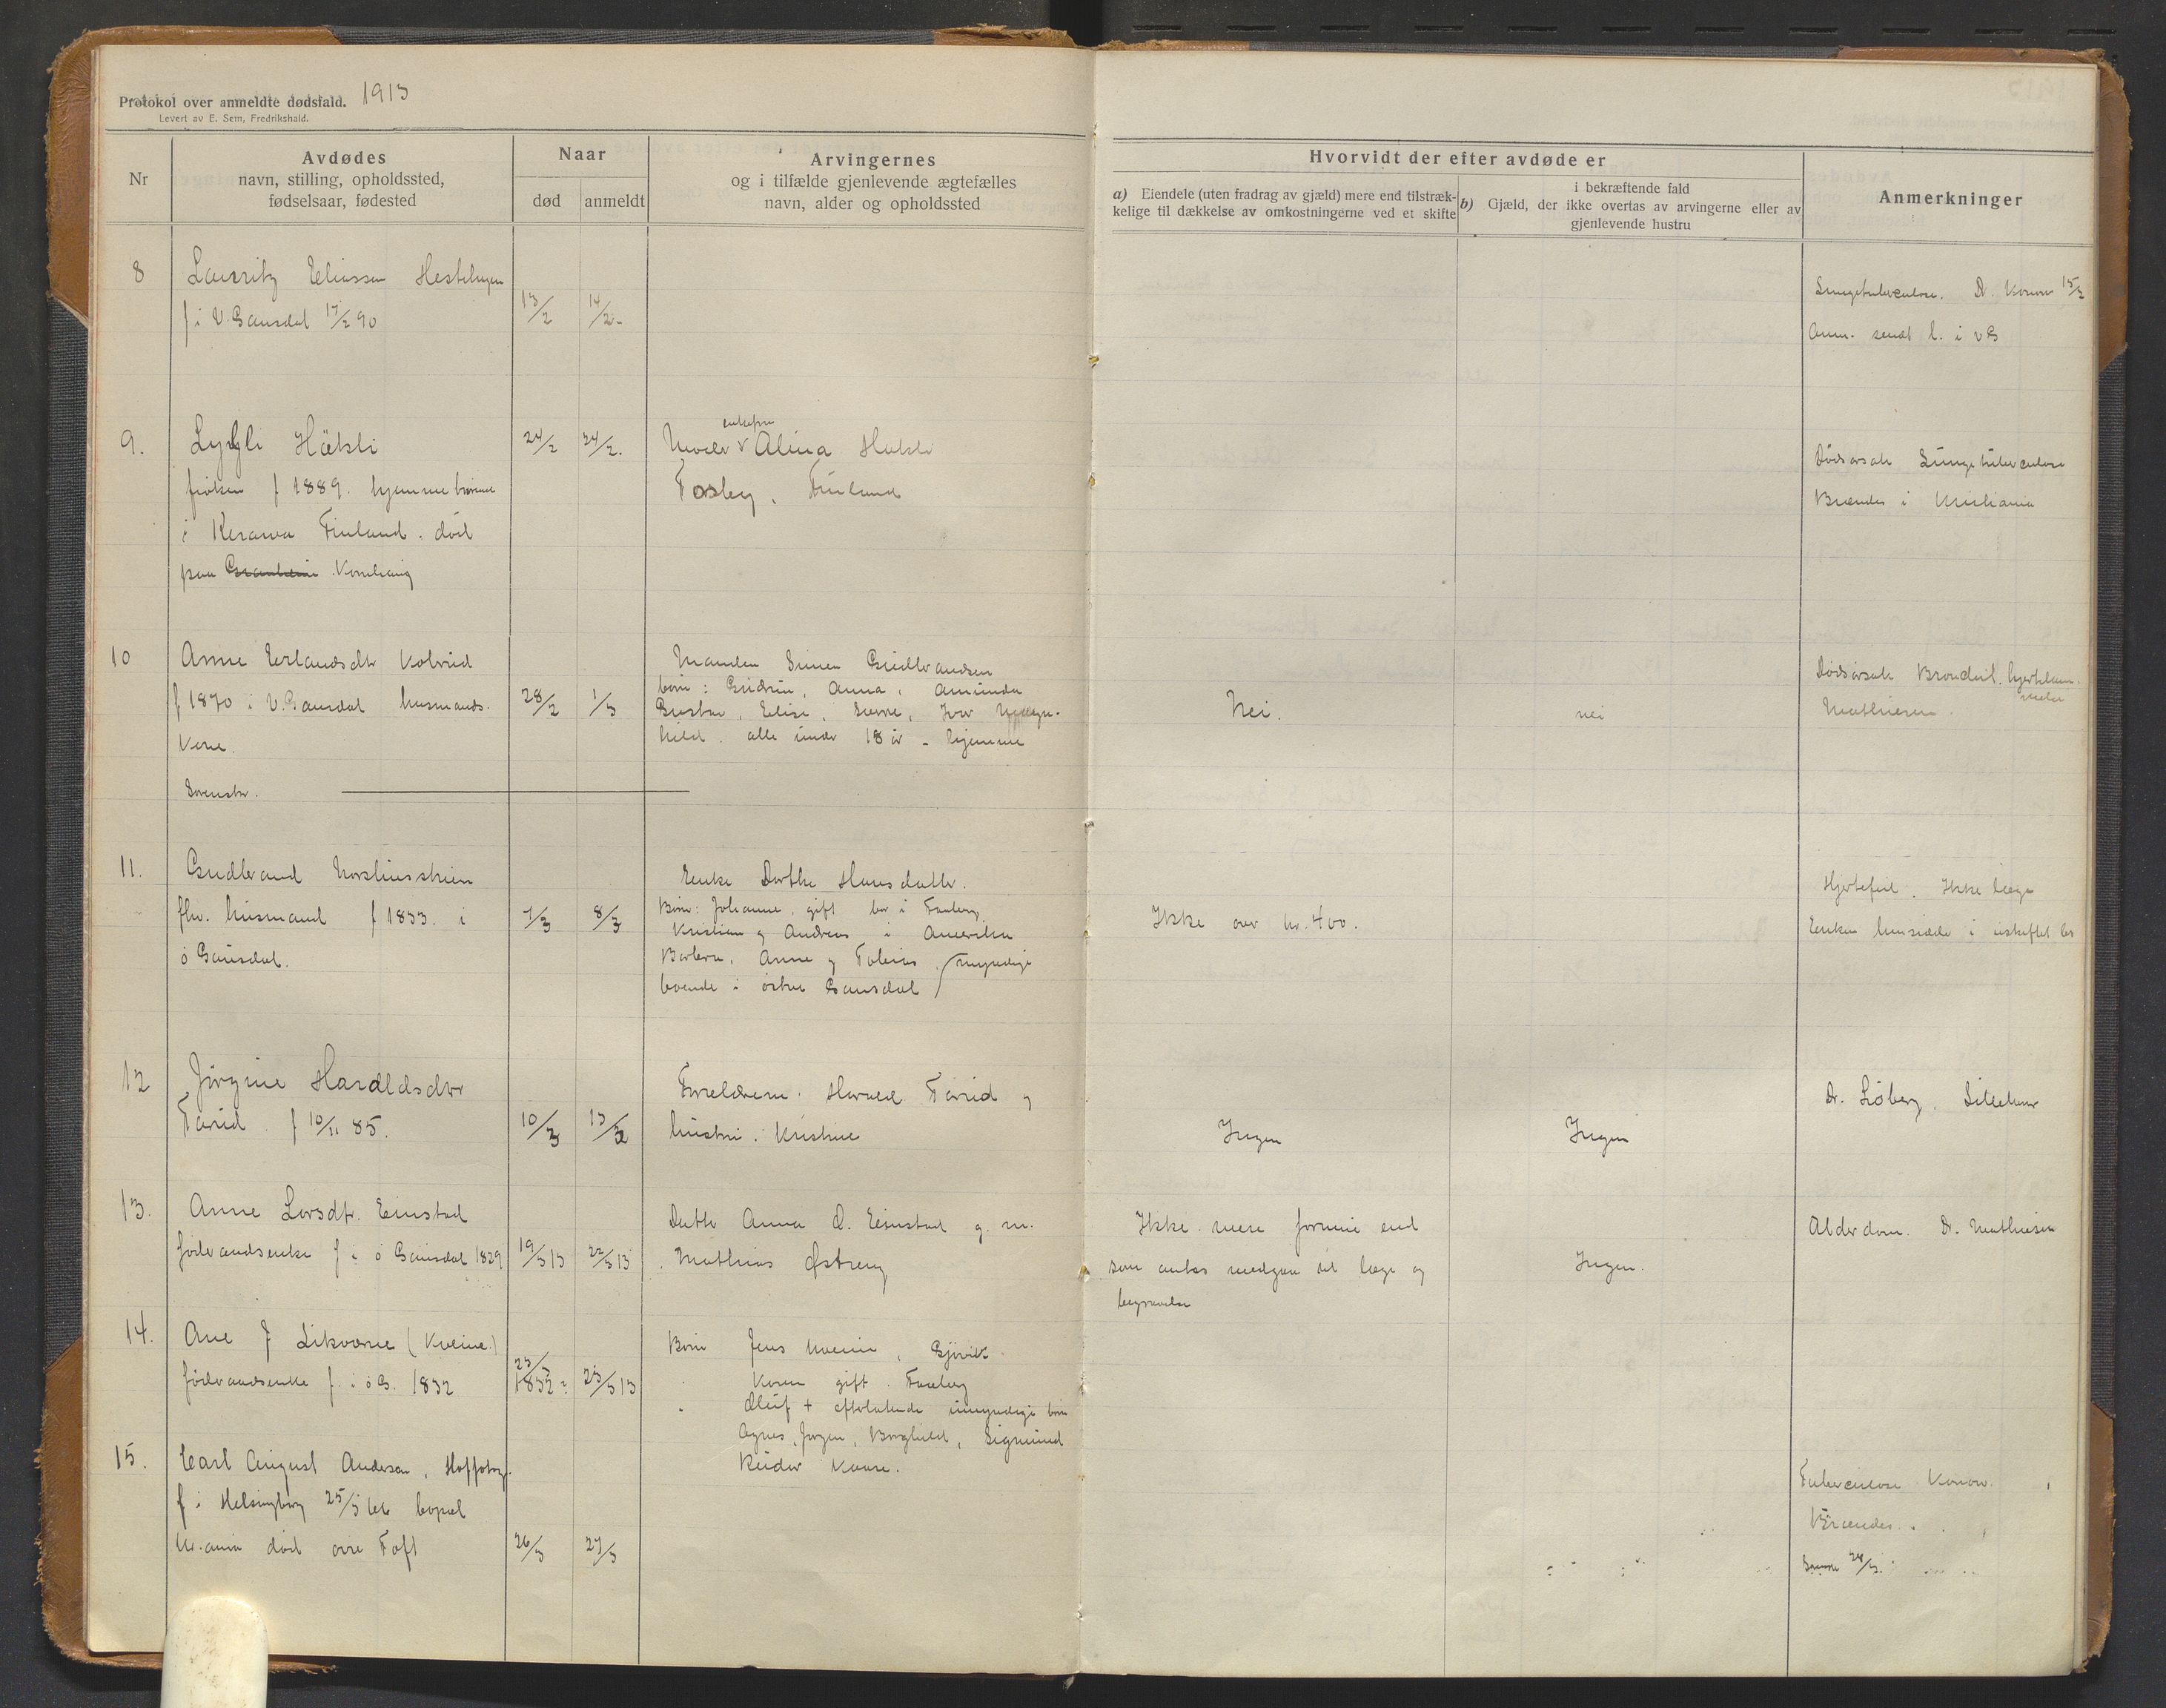 Protokol over anmeldte dødsfald. 1913
Levert av E. Sem, Fredrikshald.
Nr
Avdødes
navn, stilling, opholdssted,
fødselsaar, fødested
Naar
død
anmeldt
Arvingernes
og i tilfælde gjenlevende ægtefælles
navn, alder og opholdssted
Hvorvidt der efter avdøde er
a) Eiendele (uten fradrag av gjæld) mere end tilstræk-
kelige til dækkelse av omkostningerne ved et skifte
i bekræftende fald
b) Gjæld, der ikke overtas av arvingerne eller av
gjenlevende hustru
Anmerkninger
8
Lauritz Eliassen Hestehagen
f i V. Gausdal 17/2 90
13/2
14/2
Lungetuberculose. Dr. Konow 15/2
Anm. sendt l. i v G
9.
Lyyli Häkli
frøken f 1889. hjemmehørende
i Kerava Finland. død
paa Kornhaug
24/2
24/2.
enkefru
Moder Alina Hakli
Tosby, Finland
Dødsårsak Lungetuberculose
Brændes i Kristiania
10
Anne Erlandsdtr Kolrud
f 1870 i V. Gausdal husmands-
kone.
Svenstr.
28/2
1/3
Manden Simen Gudbrandsen
børn: Gudrun, Anna, Aminda
Gustav, Elise, Signe, Ivar Magn-
hild. alle under 18 år - hjemme
Nei.
nei
Dødsårsak Bronchit. hjertelam-
melse
Mathiesen
11.
Gudbrand Norslisstuen
fhv. husmand f 1833. i
ø Gausdal.
7/3
8/3
Enke Dorthe Hansdatter.
Børn: Johanne, gift bor i Faaberg
Kristian og Andreas i Amerika
Barbra, Anne og Toleius. myndige
boende i østre Gausdal
Ikke over kr. 400.
Hjertefeil. Ikke læge
Enken hensidder i uskiftet bo
12
Jørgine Haraldsdtr
Farud. f 10/11 85.
10/3
13/3
Forældrene. Harald Farud og
hustru. Kristine
Ingen
Ingen
Dr. Sjöberg, Lillehamr
13.
Anne Larsdtr. Einstad
føderaadsenke f i ø Gausdal 1829
19/3 13
22/3 13
Datter Anna O. Einstad g. m.
Mathias Østreng
Ikke mere formue end
som antas medgaa til læge og
begravelse
Ingen.
Alderdom. Dr. Mathiesen
14.
Ane J Likværne (Kveine.)
føderaadsenke f. i ø G. 1832
23/3
1832
25/3 13
Børn Jens Kveine, Gjøvik
" Karen gift. Faaberg
" Oluf + efterlatende umyndige børn
Agnes, Jørgen, Borghild, Sigmund
Reidar Kaare.
15.
Carl August Anderson,
f i Helsingborg 25/3 bopæl
Kr.ania død øvre Toft
26/3
27/3
Tuberculose Konow.
Brændes.
28/3.